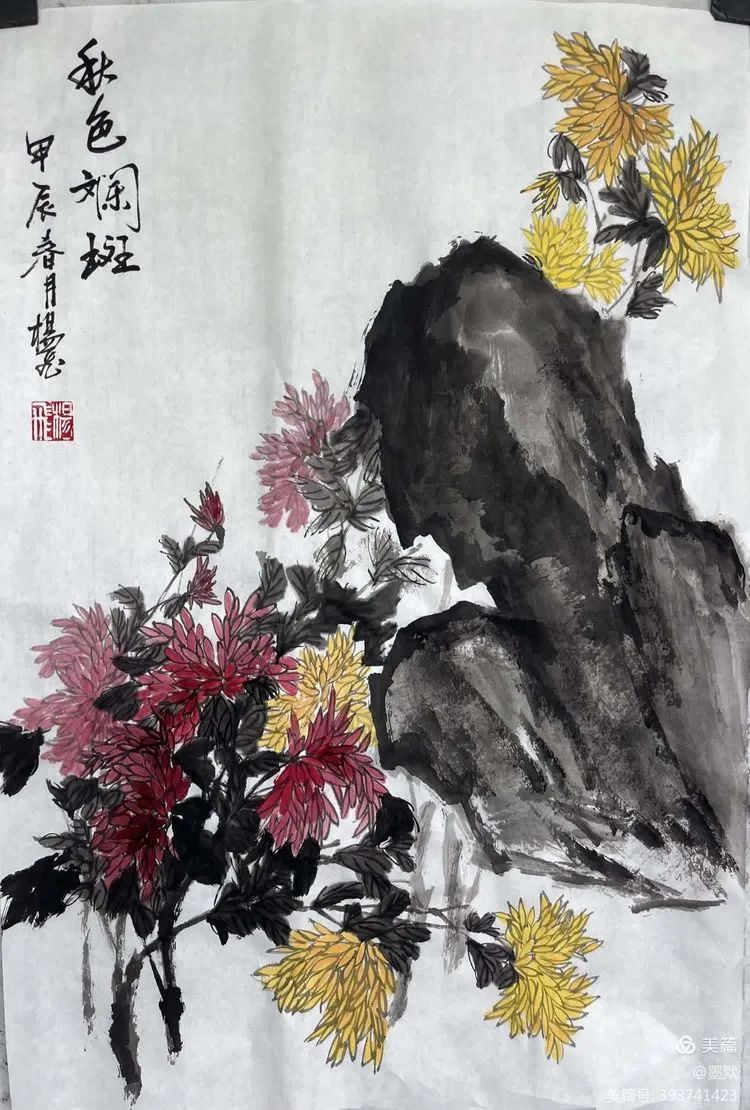 秋色斓斑
甲辰春月楊飛
楊飛
美篇
@墨默
美篇号: 393741423